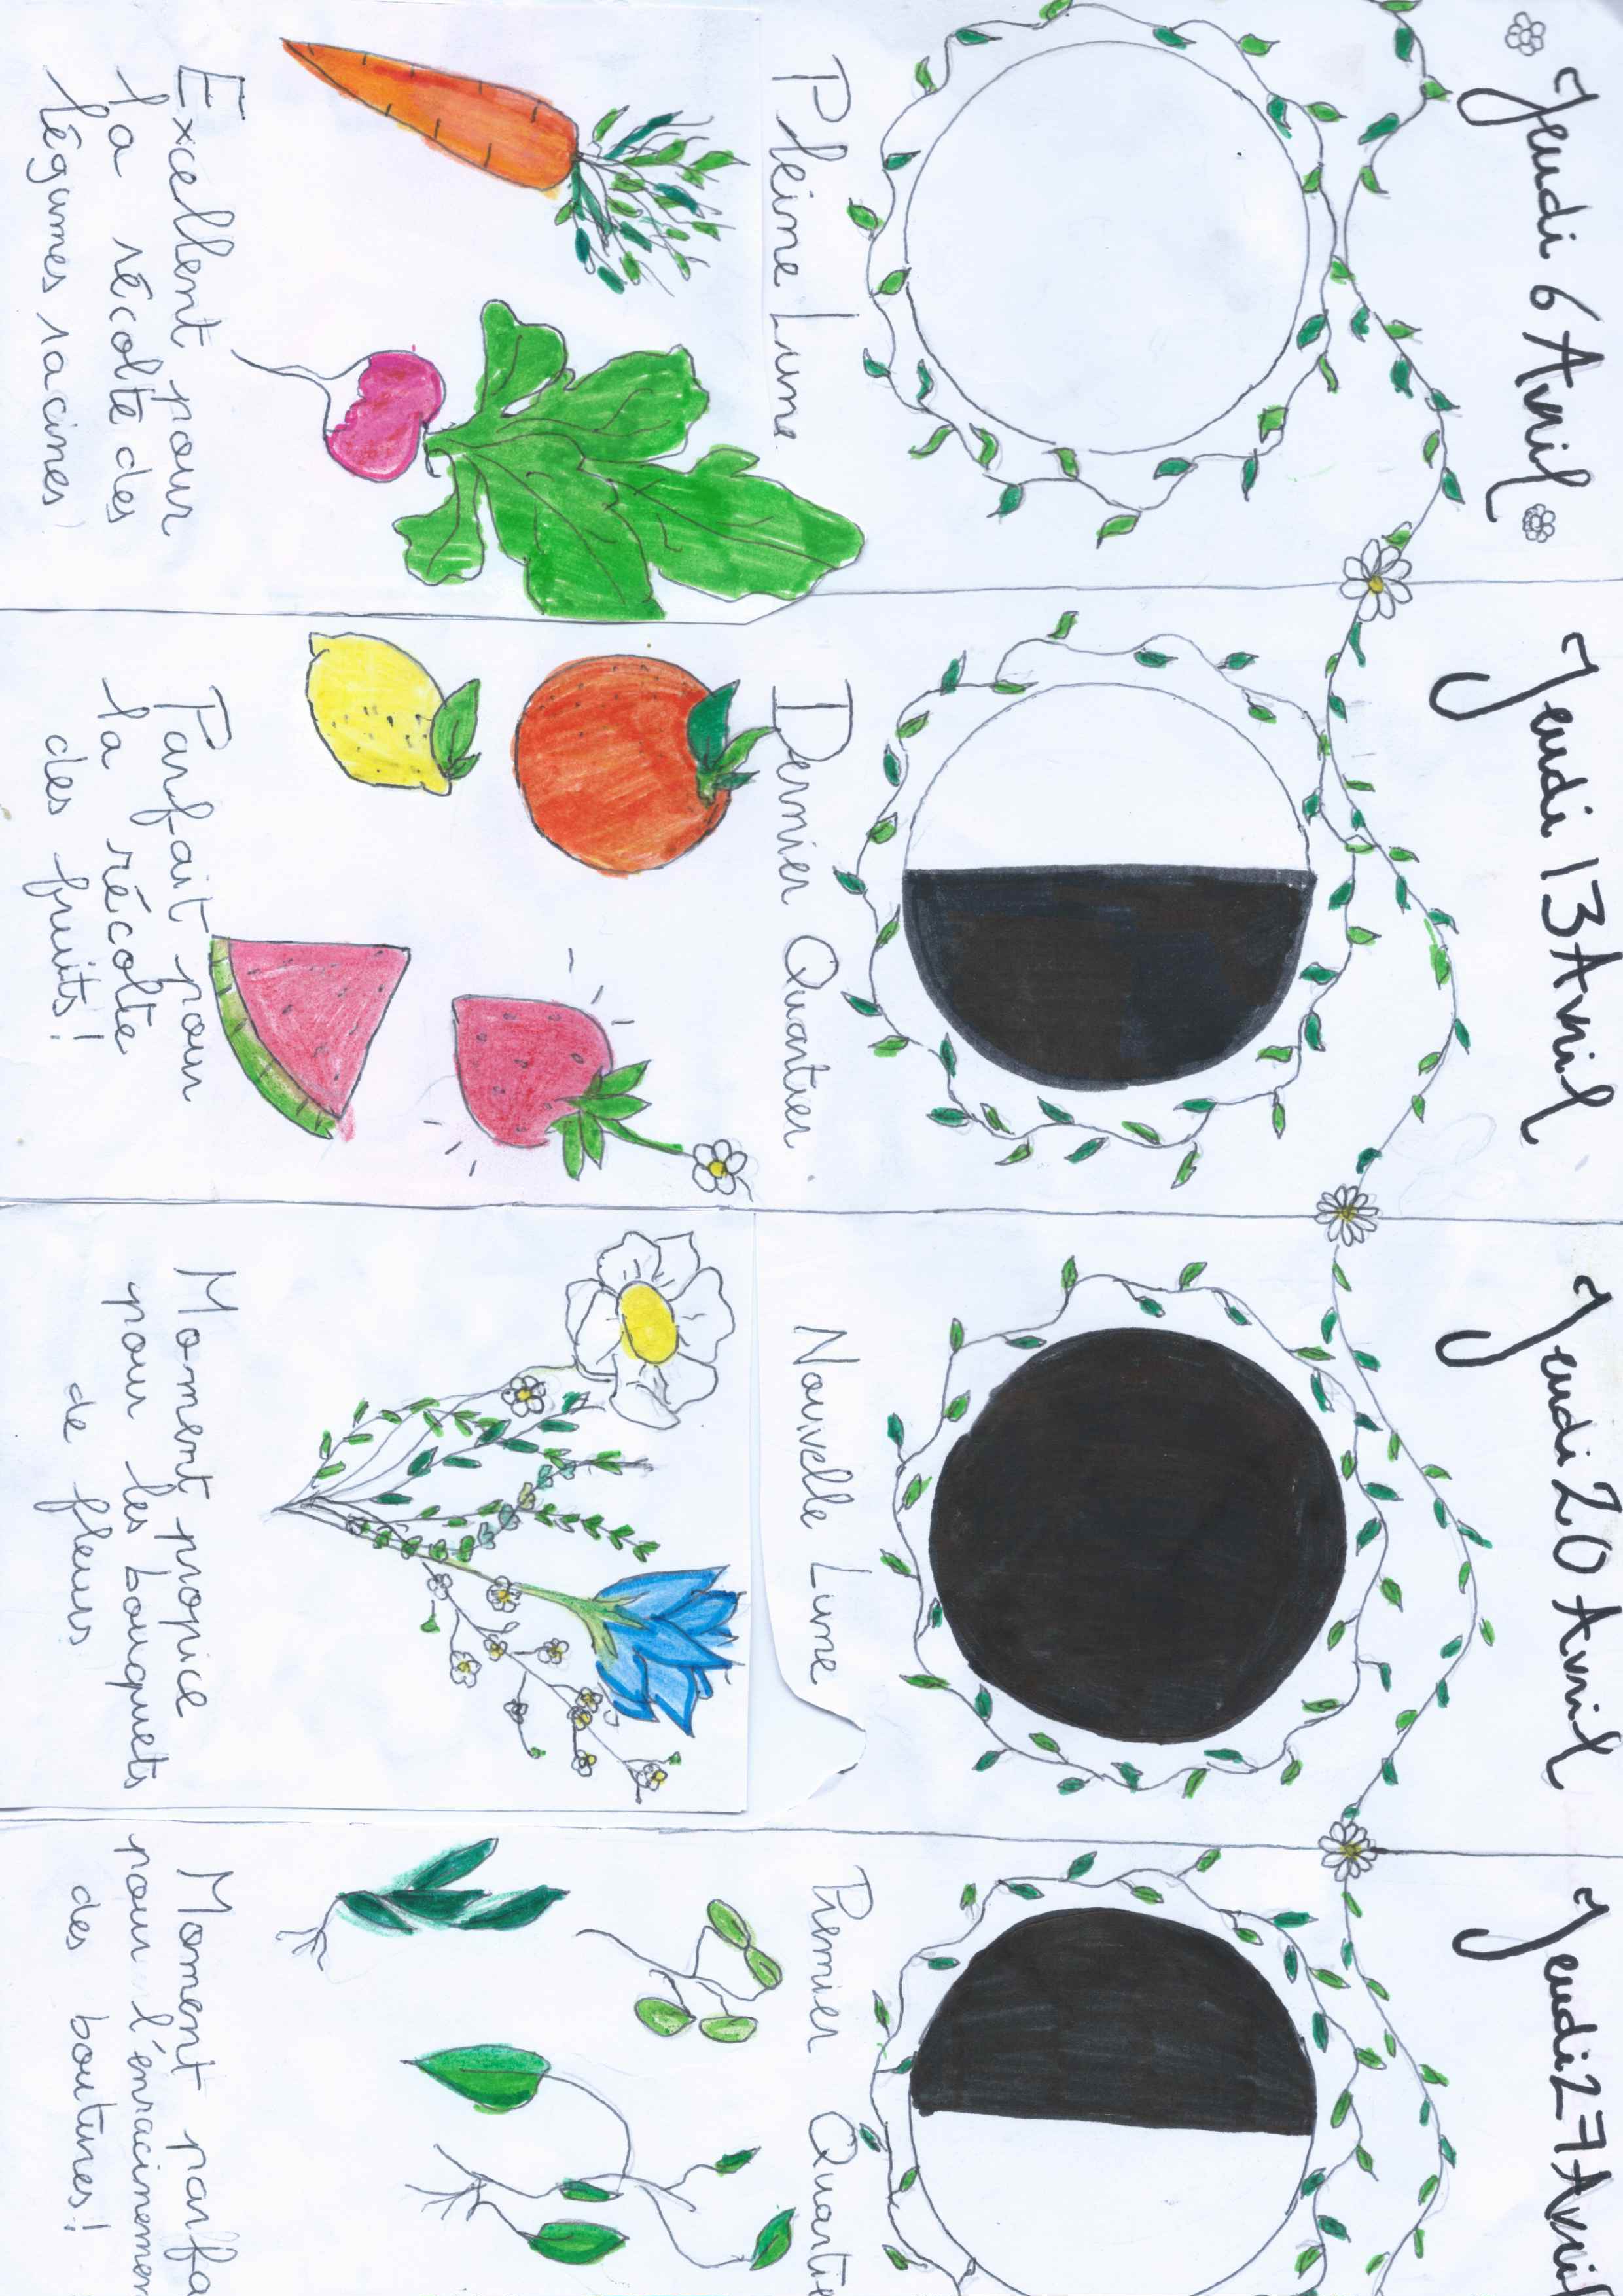 Jeudi 6 Avril
Pleine Lune
Excellent pour
la récolte des
légumes racines
Jeudi 13 Avril
Dernier Quartier
Parfait pour
la récolte
des fruits!
Jeudi 20 Avril
Nouvelle Lune
Moment propice
pour les bouquets
de fleurs
Jeudi 27 Avril
Premier Quartie
Moment parfa
pour l'enracinemen
des boutures!